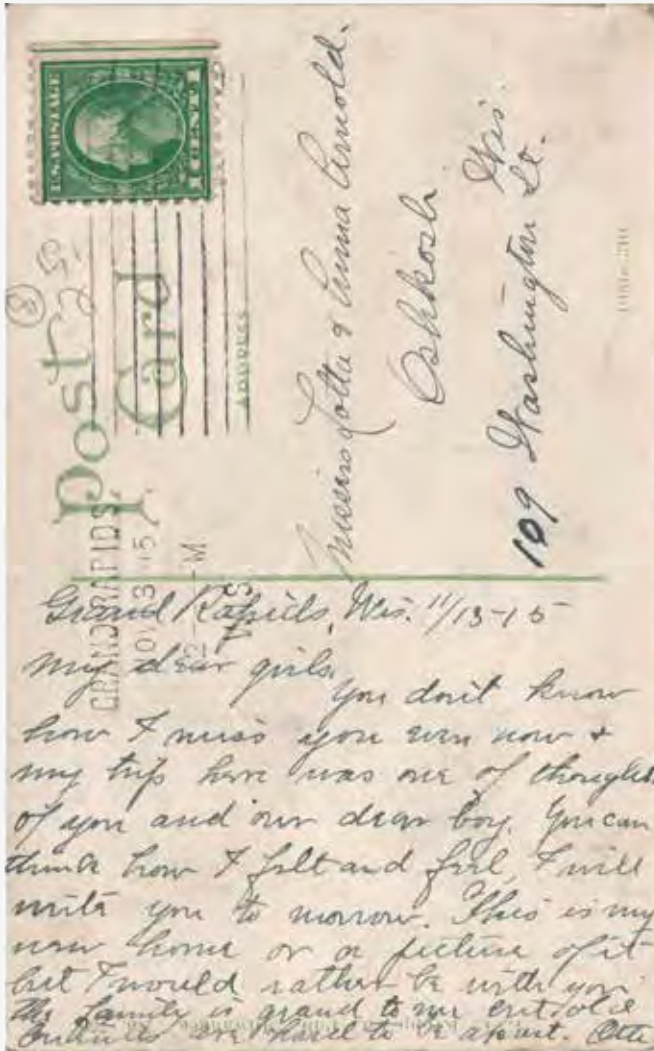 U.S. POSTAGE
1 CENT 1
2 50
Post
Card
ADDRESS
GRAND RAPIDS
WIS
Misses Lotta & Emma Arnold.
Oshkosh
Wis.
109 Washington St.
Grand Rapids, Wis. 11/13-15
My dear girls.
You don't know
how I miss you even now &
my trip here was one of thoughts
of you and our dear boy. You can
think how I felt and feel, I will
write you to morrow. This is my
new home or a picture of it
but I would rather be with you
the family is grand to me
are hard to be apart. Otto